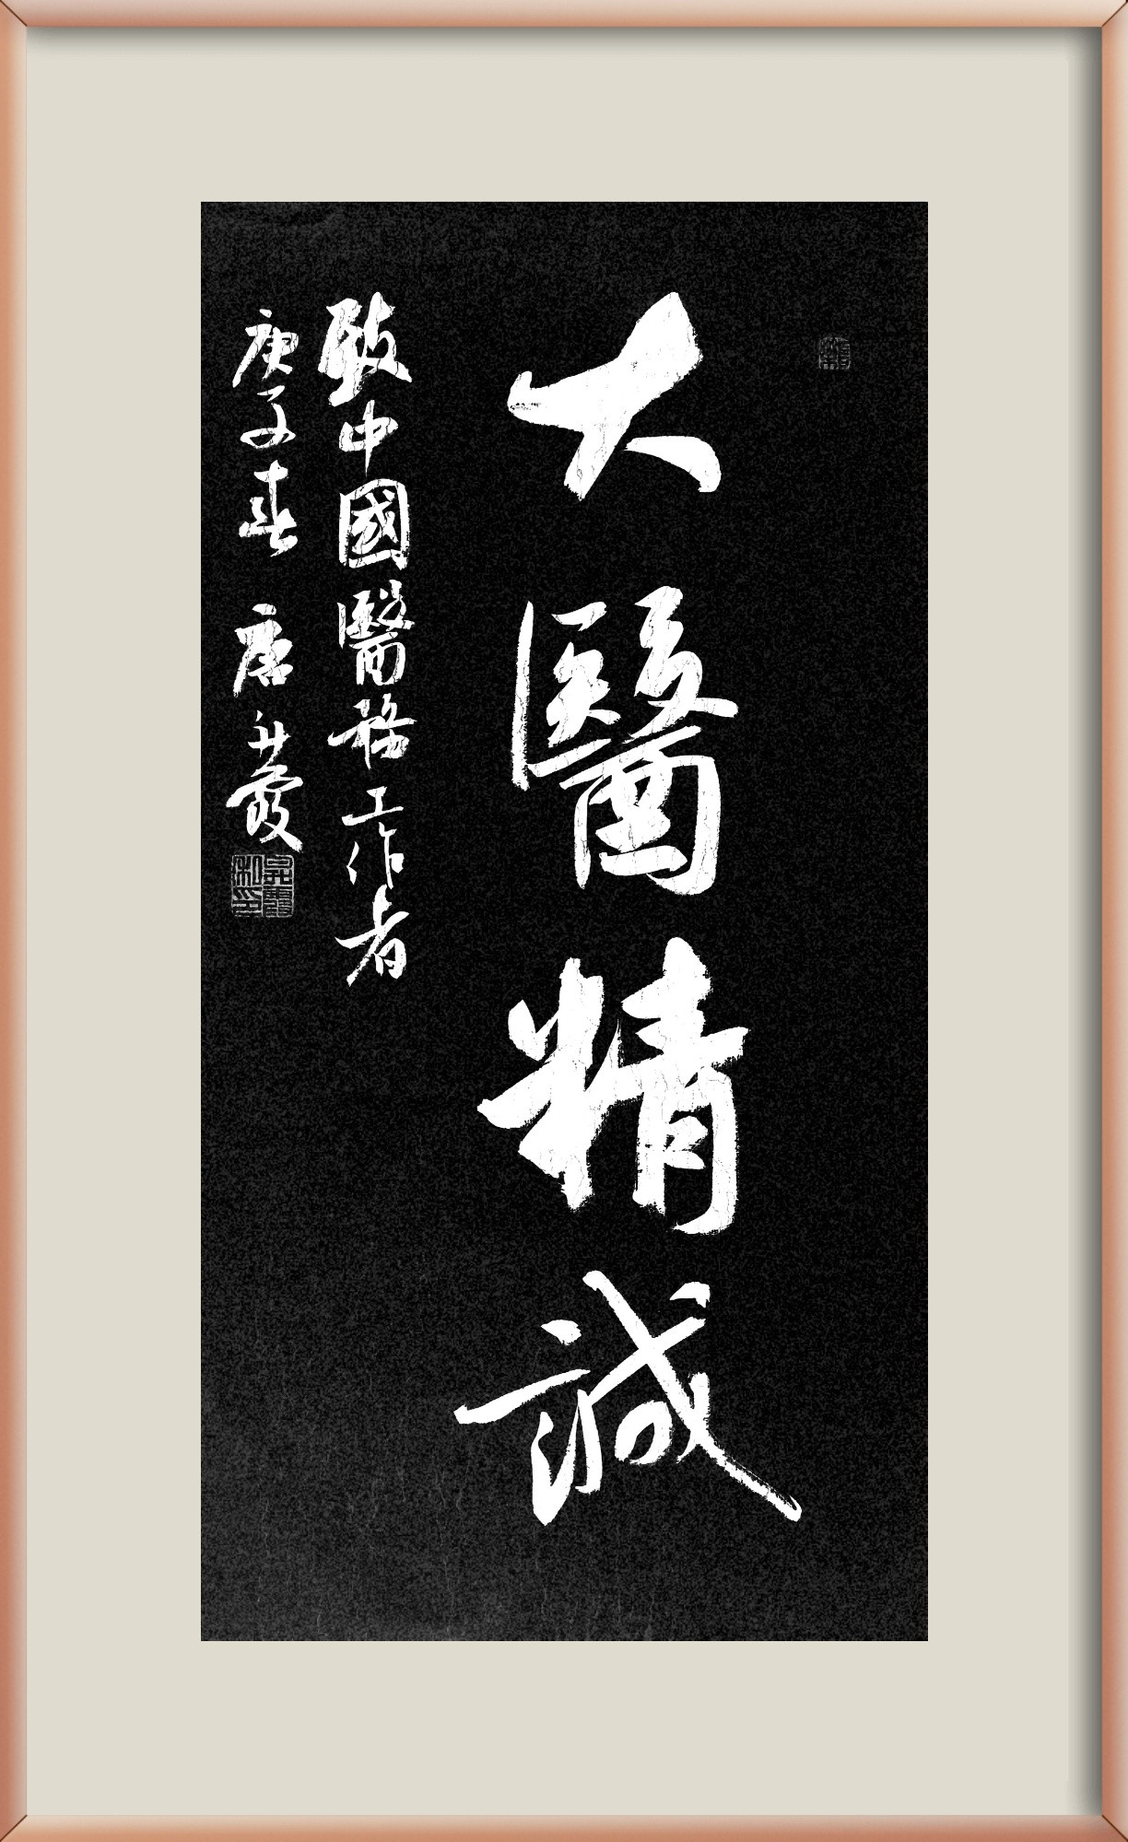 大醫精誠
致中國醫務工作者
庚子春 唐升霞